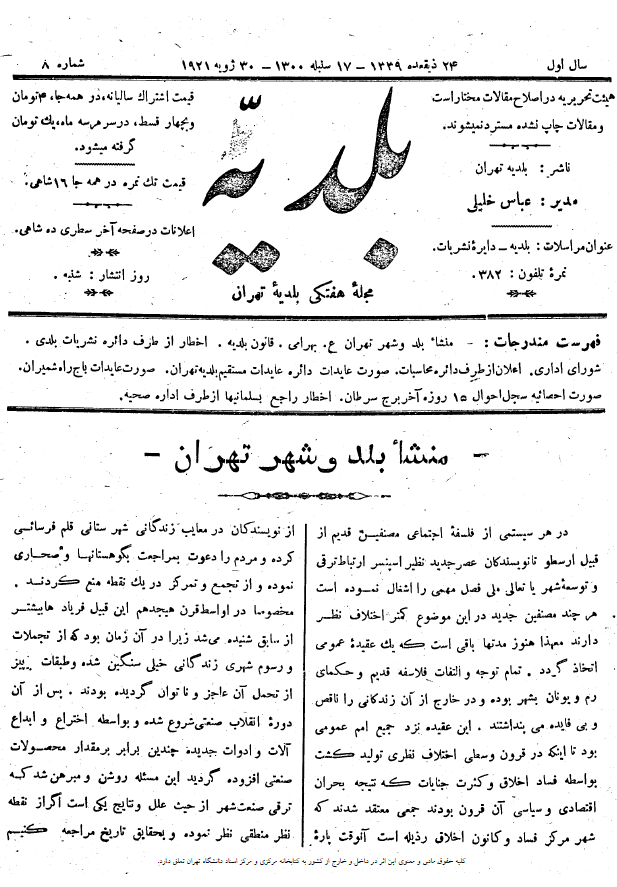 سال اول
۲۴ ذیقعده ۱۳۳۹ – ۱۷ سنبله ۱۳۰۰ – ۳۰ ژویه ۱۹۲۱
شماره ۸
هیئت تحریریه در اصلاح مقالات مختار است
و مقالات چاپ نشده مسترد نمیشوند.
ناشر : بلدیه تهران
مدیر : عباس خلیلی
عنوان مراسلات : بلدیه – دایرهٔ نشریات.
نمرهٔ تلفون : ۳۸۲.
بلدیّه
مجلهٔ هفتگی بلدیهٔ تهران
قیمت اشتراك سالیانه، در همه جا، ۴ تومان
و بچهار قسط، در سر هر سه ماه، یك تومان
گرفته میشود.
قیمت تك نمره در همه جا ۱۶ شاهی.
اعلانات در صفحه آخر سطری ده شاهی.
روز انتشار : شنبه .
فهرست مندرجات : - منشأ بلد وشهر تهران ع. بهرامی . قانون بلدیه . اخطار از طرف دائره نشریات بلدی .
شورای اداری. اعلان از طرف دائره محاسبات. صورت عایدات دائره عایدات مستقیم بلدیه تهران. صورت عایدات باج راه شمیران.
صورت احصائیه سجل احوال ۱۵ روزه آخر برج سرطان. اخطار راجع بسلمانیها از طرف اداره صحیه.
- منشأ بلد وشهر تهران -
در هر سیستمی از فلسفهٔ اجتماعی مصنفین قدیم از
قبیل ارسطو تا نویسندکان عصر جدید نظیر اسپنسر ارتباط ترقی
و توسعهٔ شهر یا تعالی ملی فصل مهمی را اشغال نموده است
هر چند مصنفین جدید در این موضوع کمتر اختلاف نظر
دارند معهذا هنوز مدتها باقی است که یك عقیدهٔ عمومی
اتخاذ گردد . تمام توجه و التفات فلاسفه قدیم و حکمای
رم و یونان بشهر بوده و در خارج از آن زندکانی را ناقص
و بی فایده می پنداشتند . این عقیده نزد جمیع امم عمومی
بود تا اینکه در قرون وسطی اختلاف نظری تولید گشت
بواسطه فساد اخلاق و کثرت جنایات که نتیجه بحران
اقتصادی و سیاسی آن قرون بودند جمعی معتقد شدند که
شهر مرکز فساد و کانون اخلاق رذیله است آنوقت پارهٔ
از نویسندکان در معایب زندگانی شهرستانی قلم فرسائی
کرده و مردم را دعوت بمراجعت بکوهستانها و صحاری
نموده و از تجمع و تمرکز در یك نقطه منع کردند .
مخصوصا در اواسط قرن هیجدهم این قبیل فریاد ها بیشتر
از سابق شنیده می‌شد زیرا در آن زمان بود که از تجملات
و رسوم شهری زندگانی خیلی سنگین شده و طبقات
از تحمل آن عاجز و ناتوان گردیده بودند . پس از آن
دورهٔ انقلاب صنعتی شروع شده و بواسطه اختراع و ابداع
آلات و ادوات جدیده چندین برابر بر مقدار محصولات
صنعتی افزوده گردید این مسئله روشن و مبرهن شد که
ترقی صنعت شهر از حیث علل و نتایج یکی است اگر از نقطه
نظر منطقی نظر نموده و بحقایق تاریخ مراجعه کنیم
کلیه حقوق مادی و معنوی این اثر در داخل و خارج از کشور به کتابخانه مرکزی و مرکز اسناد دانشگاه تهران تعلق دارد.